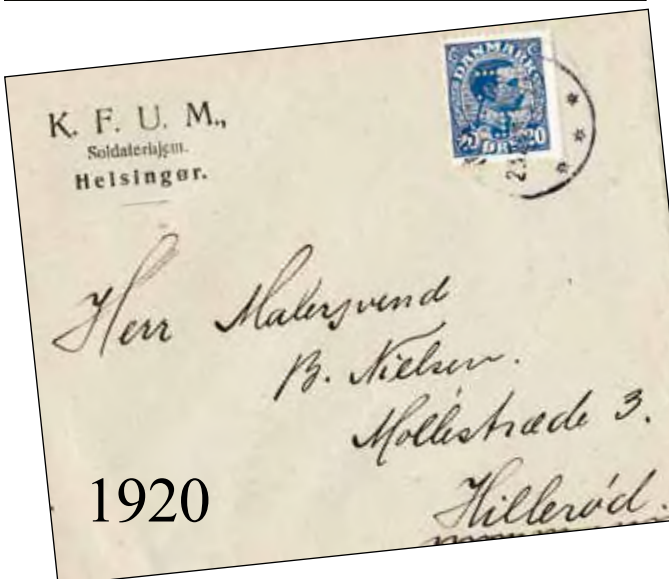 K. F. U. M.,
Soldaterhjem.
Helsingør.
DANMARK
20 ØRE 20
Herr Malersvend
B. Nielsen.
Møllestræde 3.
Hillerød.
1920